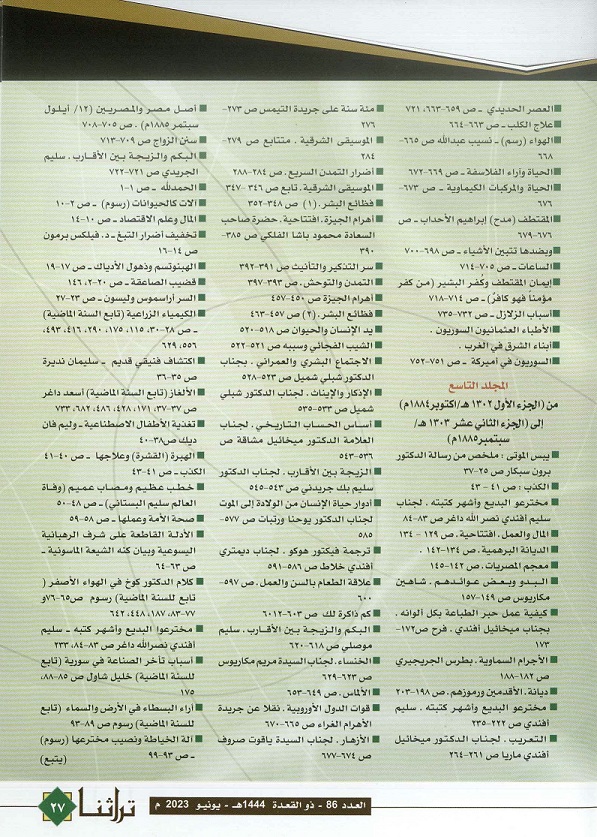 العصر الحديدي - ص ٦٥٩-٦٦٣، ٧٢١
علاج الكلب- ص ٦٦٣-٦٦٤
الهواء (رسم) - نسيب عبدالله ص ٦٦٥-
٦٦٨
الحياة وآراء الفلاسفة - ص ٦٦٩-٦٧٢
الحياة والمركبات الكيماوية - ص ٦٧٣-
٦٧٦
المقتطف (مدح) إبراهيم الأحداب - ص
٦٧٦-٦٧٩
وبضدها تتبين الأشياء - ص ٦٩٨-٧٠٠
الساعات - ص ٧٠٥-٧١٤
إيمان المقتطف وكفر البشير (من كفر
مؤمنا فهو كافر) - ص ٧١٤-٧١٨
أسباب الزلازل - ص ٧٣٢-٧٣٥
الأطباء العثمانيون السوريون .
أبناء الشرق في الغرب .
السوريون في أميركة - ص ٧٥١-٧٥٢
المجلد التاسع
من (الجزء الأول ١٣٠٢ هـ/أكتوبر١٨٨٤م)
إلى (الجزء الثاني عشر ١٣٠٣ هـ/
سبتمبر١٨٨٥م)
يبس الموتى : ملخص من رسالة الدكتور
برون سبكار ص ٢٥-٣٧
الكذب : ص ٤١ - ٤٣
مخترعو البديع وأشهر كتبته . لجناب
سليم أفندي نصر الله داغر ص ٨٣-٨٤
المال والعمل . افتتاحية . ص ١٢٩ - ١٣٤
الديانة البرهمية . ص ١٣٤-١٤٢ .
معجم المصريات . ص ١٤٢-١٤٥
البدو وبعض عوائدهم . شاهين
مكاريوس ص ١٤٩-١٥٧
كيفية عمل حبر الطباعة بكل ألوانه .
بجناب ميخائيل أفندي . فرح ص١٧٢-
١٧٣
الأجرام السماوية . بطرس الجريجيري
ص ١٨٢-١٨٨
ديانة . الأقدمين ورموزهم . ص ١٩٨-٢٠٣
مخترعو البديع وأشهر كتبته . سليم
أفندي ص ٢٢٢-٢٣٥
التعريب . لجناب الدكتور ميخائيل
أفندي ماريا ص ٢٦١-٢٦٤
مئة سنة على جريدة التيمس ص ٢٧٣-
٢٧٦
الموسيقى الشرقية . متتابع ص ٢٧٩-
٢٨٤
أضرار التمدن السريع . ص ٢٨٤-٢٨٨
الموسيقى الشرقية. تابع ص ٣٤٦- ٣٤٧
فظائع البشر. (١) ص ٣٤٨-٣٥٢
أهرام الجيزة . افتتاحية . حضرة صاحب
السعادة محمود باشا الفلكي ص ٣٨٥-
٣٩٠
سر التذكير والتأنيث ص ٣٩١-٣٩٢
التمدن والتوحش . ص ٣٩٣-٣٩٧
أهرام الجيزة ص ٤٥٠-٤٥٧
فظائع البشر . (٢) ص ٤٥٧-٤٦٣
يد الإنسان والحيوان ص ٥١٨-٥٢٠
الشيب الفجائي وسببه ص ٥٢١-٥٢٢
الاجتماع البشري والعمراني . بجناب
الدكتور شبلي شميل ص ٥٢٣-٥٢٨
الإذكار والإيناث . لجناب الدكتور شبلي
شميل ص ٥٣٣-٥٣٥
أساس الحساب التاريخي . لجناب
العلامة الدكتور ميخائيل مشاقة ص
٥٣٦-٥٤٣
الزيجة بين الأقارب . لجناب الدكتور
سليم بك جريدني ص ٥٤٣-٥٤٥
أدوار حياة الإنسان من الولادة إلى الموت
لجناب الدكتور يوحنا ورتبات ص ٥٧٧-
٥٨٥
ترجمة فيكتور هوكو . لجناب ديمتري
أفندي خلاط ص ٥٨٦-٥٩١
علاقة الطعام بالسن والعمل . ص ٥٩٧-
٦٠٠
كم ذاكرة لك ص ٦٠٣-٦٠١٢
البكم والزيجة بين الأقارب. سليم
موصلي ص ٦١٨-٦٢٠
الخنساء . لجناب السيدة مريم مكاريوس
ص ٦٢٣-٦٢٩
الألماس . ص ٦٤٩-٦٥٣
قوات الدول الأوروبية . نقلا عن جريدة
الأهرام الغراء ص ٦٦٥-٦٧٠
الأزهار . لجناب السيدة ياقوت صروف
ص ٦٧٤-٦٧٧
أصل مصر والمصريين (١٢/ أيلول
سبتمبر ١٨٨٥م) . ص ٧٠٥-٧٠٨
سنن الزواج ص ٧٠٩-٧١٣
البكم والزيجة بين الأقارب . سليم
الجريدي ص ٧٢١-٧٢٢
الحمدلله - ص ١-١
آلات كالحيوانات (رسوم) - ص ٢-١٠
المال وعلم الاقتصاد - ص ١٠-١٤
تخفيف أضرار التبغ - د. فيلكس برمون
ص ١٤-١٦
الهبنوتسم وذهول الأدياك - ص ١٧-١٩
قضيب الصاعقة - ص ٢٠-٢، ١٤٦
السر أراسموس وليسون - ص ٢٣-٢٧
الكيمياء الزراعية (تابع السنة الماضية)
- ص ٢٨-٣٠، ١١٥، ١٧٥، ٢٩٠، ٤١٦، ٤٩٣،
٥٥٦، ٦٢٩
اكتشاف فنيقي قديم - سليمان نديرة
ص ٣٥-٣٦
الألغاز (تابع السنة الماضية) أسعد داغر
ص ٣٧-٣٧، ١٧١، ٤٢٨، ٤٨٦، ٦٨٢، ٧٣٣
تغذية الأطفال الاصطناعية - وليم فان
ديك ص٣٨-٤٠
الهبرة (القشرة) وعلاجها - ص ٤٠-٤١
الكذب - ص ٤١-٤٣
خطب عظيم ومصاب عميم (وفاة
العالم سليم البستاني) - ص ٤٨-٥٠
صحة الأمة وعملها - ص ٥٨-٥٩
الأدلة القاطعة على شرف الرهبانية
اليسوعية وبيان كنه الشيعة الماسونية -
ص ٦٣-٦٤
كلام الدكتور كوخ في الهواء الأصفر (
تابع للسنة الماضية) رسوم ص٦٥-٧٦و
٧٧-٨٣، ١٨٧، ٤٤٨، ٦٤٢
مخترعوا البديع وأشهر كتبه - سليم
أفندي نصرالله داغر ص ٨٣-٨٤، ٢٣٣
أسباب تأخر الصناعة في سورية (تابع
للسنة الماضية) خليل شاول ص ٨٥-٨٨،
١٧٥
آراء البسطاء في الأرض والسماء (تابع
للسنة الماضية) رسوم ص ٨٩-٩٣
آلة الخياطة ونصيب مخترعها (رسوم)
- ص ٩٣-٩٩ (يتبع)
العدد 86 - ذو القعدة 1444هـ - يونيو 2023 م
تراثنا
٢٧